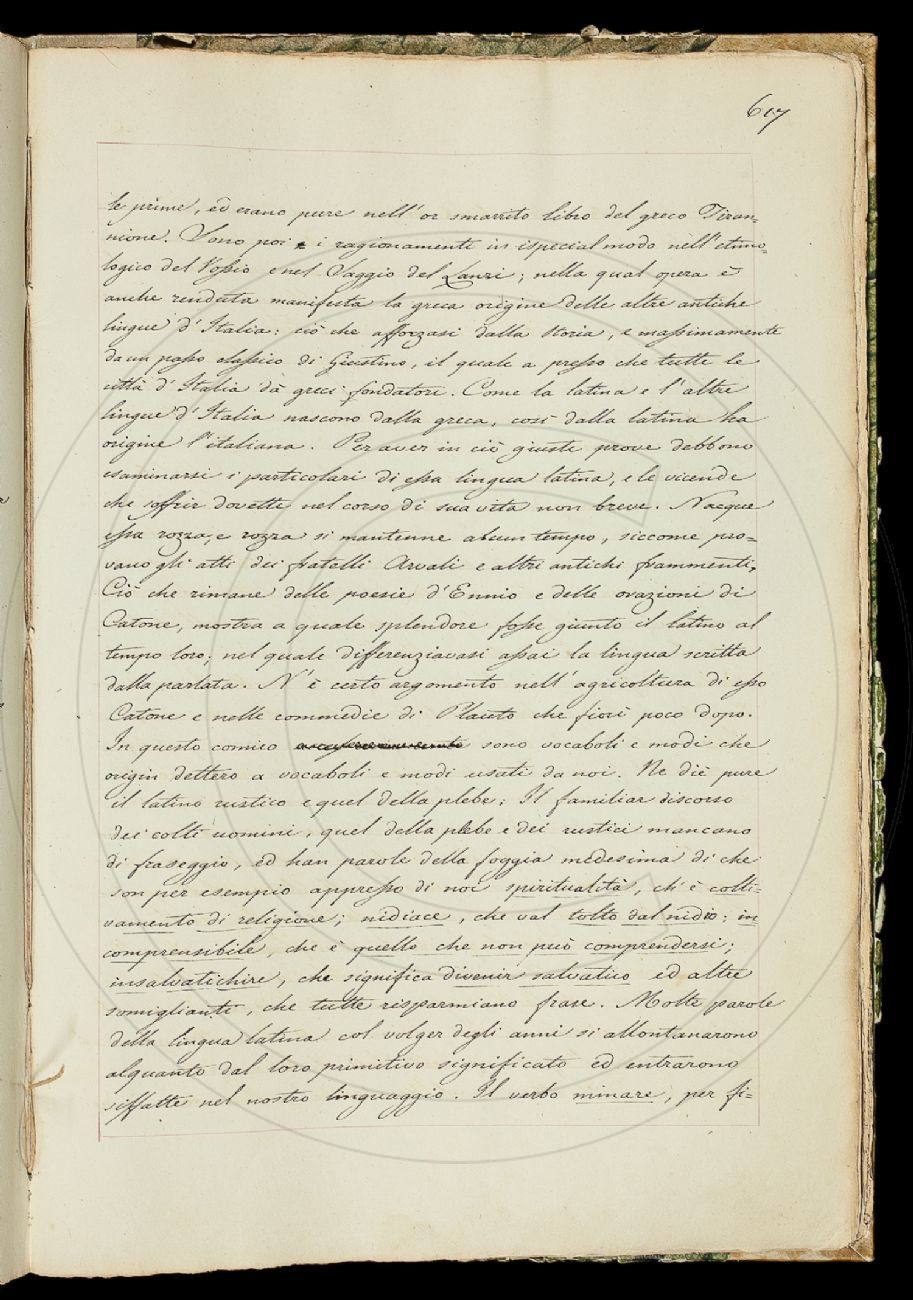 617
le prime, ed erano pure nell' or smarrito libro del greco Tiran=
nione. Sono poi i ragionamenti in ispecial modo nell' etimo=
logico del Vossio e nel Saggio del Lanzi; nella qual opera è
anche renduta manifesta la greca origine delle altre antiche
lingue d' Italia: ciò che afforzasi dalla storia, e massimamente
da un passo classico di Giustino, il quale a presso che tutte le
città d' Italia dà greci fondatori. Come la latina e l' altre
lingue d' Italia nascono dalla greca, così dalla latina ha
origine l' italiana. Per aver in ciò giuste prove debbono
esaminarsi i particolari di essa lingua latina, e le vicende
che soffrir dovette nel corso di sua vita non breve. Nacque
essa rozza, e rozza si mantenne alcun tempo, siccome pro=
vano gli atti dei fratelli Arvali e altri antichi frammenti.
Ciò che rimane delle poesie d' Ennio e delle orazioni di
Catone, mostra a quale splendore fosse giunto il latino al
tempo loro; nel quale differenziavasi assai la lingua scritta
dalla parlata. N' è certo argomento nell' agricoltura di esso
Catone e nelle commedie di Plauto che fiorì poco dopo.
In questo comico sono vocaboli e modi che
origin dettero a vocaboli e modi usati da noi. Ne diè pure
il latino rustico e quel della plebe; Il familiar discorso
dei colti uomini, quel della plebe e dei rustici mancano
di fraseggio, ed han parole della foggia medesima di che
son per esempio appresso di noi spiritualità, ch' è colti=
vamento di religione; nidiace, che val tolto dal nidio; in
comprensibile, che è quello che non può comprendersi;
insalvatichire, che significa divenir salvatico ed altre
somiglianti, che tutte risparmiano frase. Molte parole
della lingua latina col volger degli anni si allontanarono
alquanto dal loro primitivo significato ed entrarono
siffatte nel nostro linguaggio. Il verbo minare, per fi=